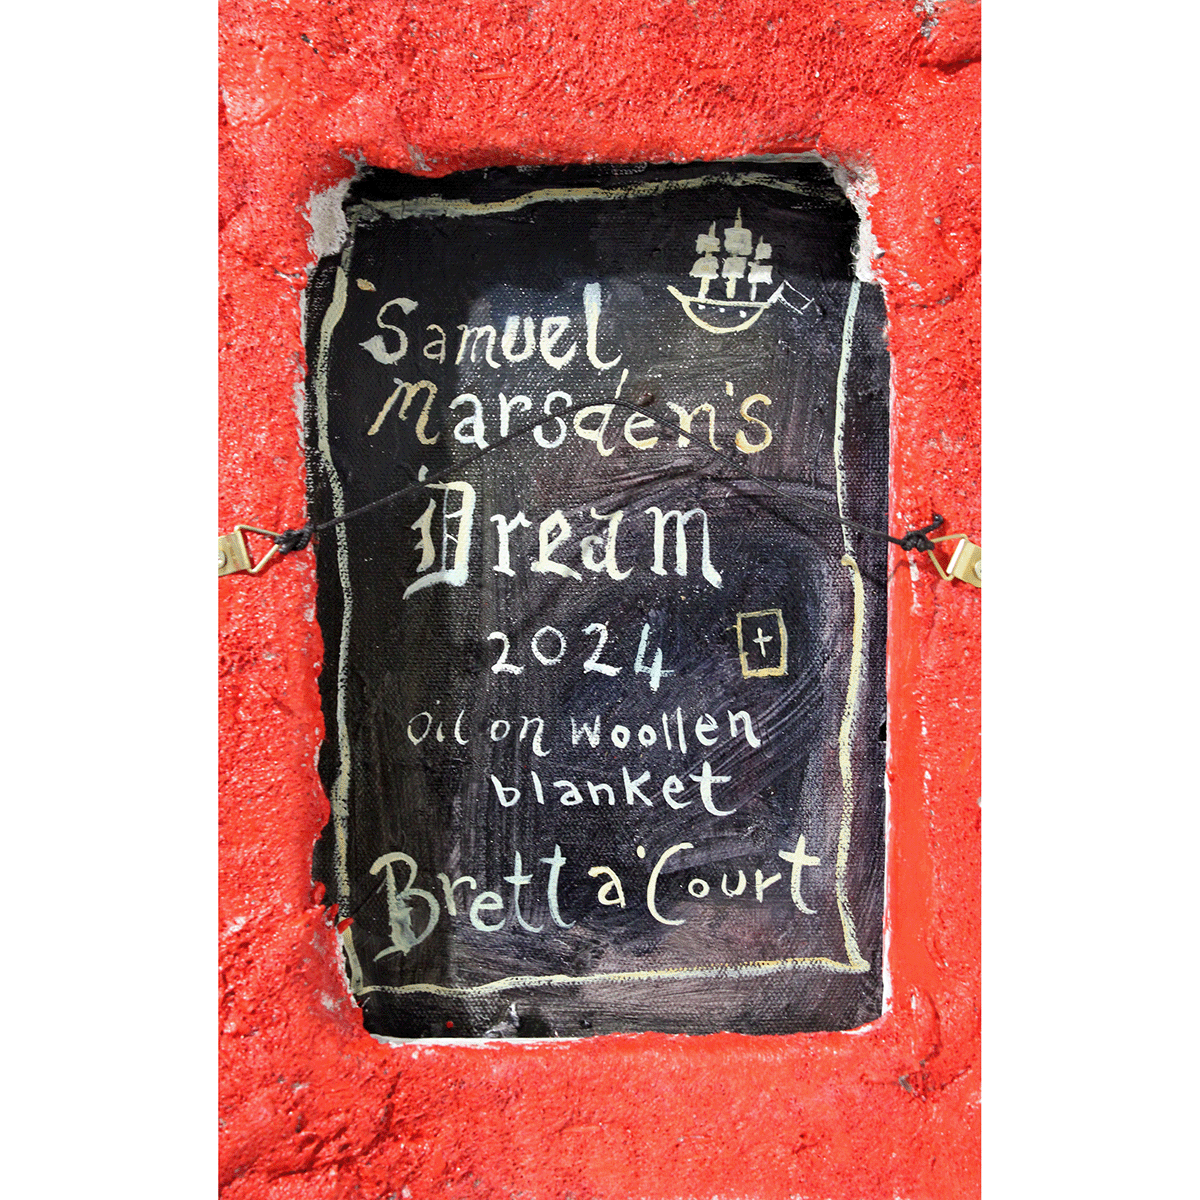 Samuel
Marsden's
Dream
2024
oil on woollen
blanket
Brett a'Court